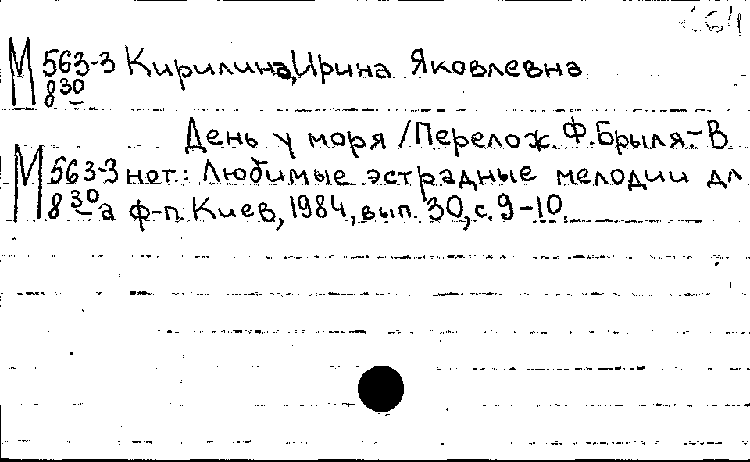 М 563-3 Кирилина, Ирина Яковлевна
8 30
День у моря / Перелож. Ф. Брыля.- В
М 563-3 нот.: Любимые эстрадные мелодии дл
8 30 а ф-п. Киев, 1984, вып. 30, с. 9-10.